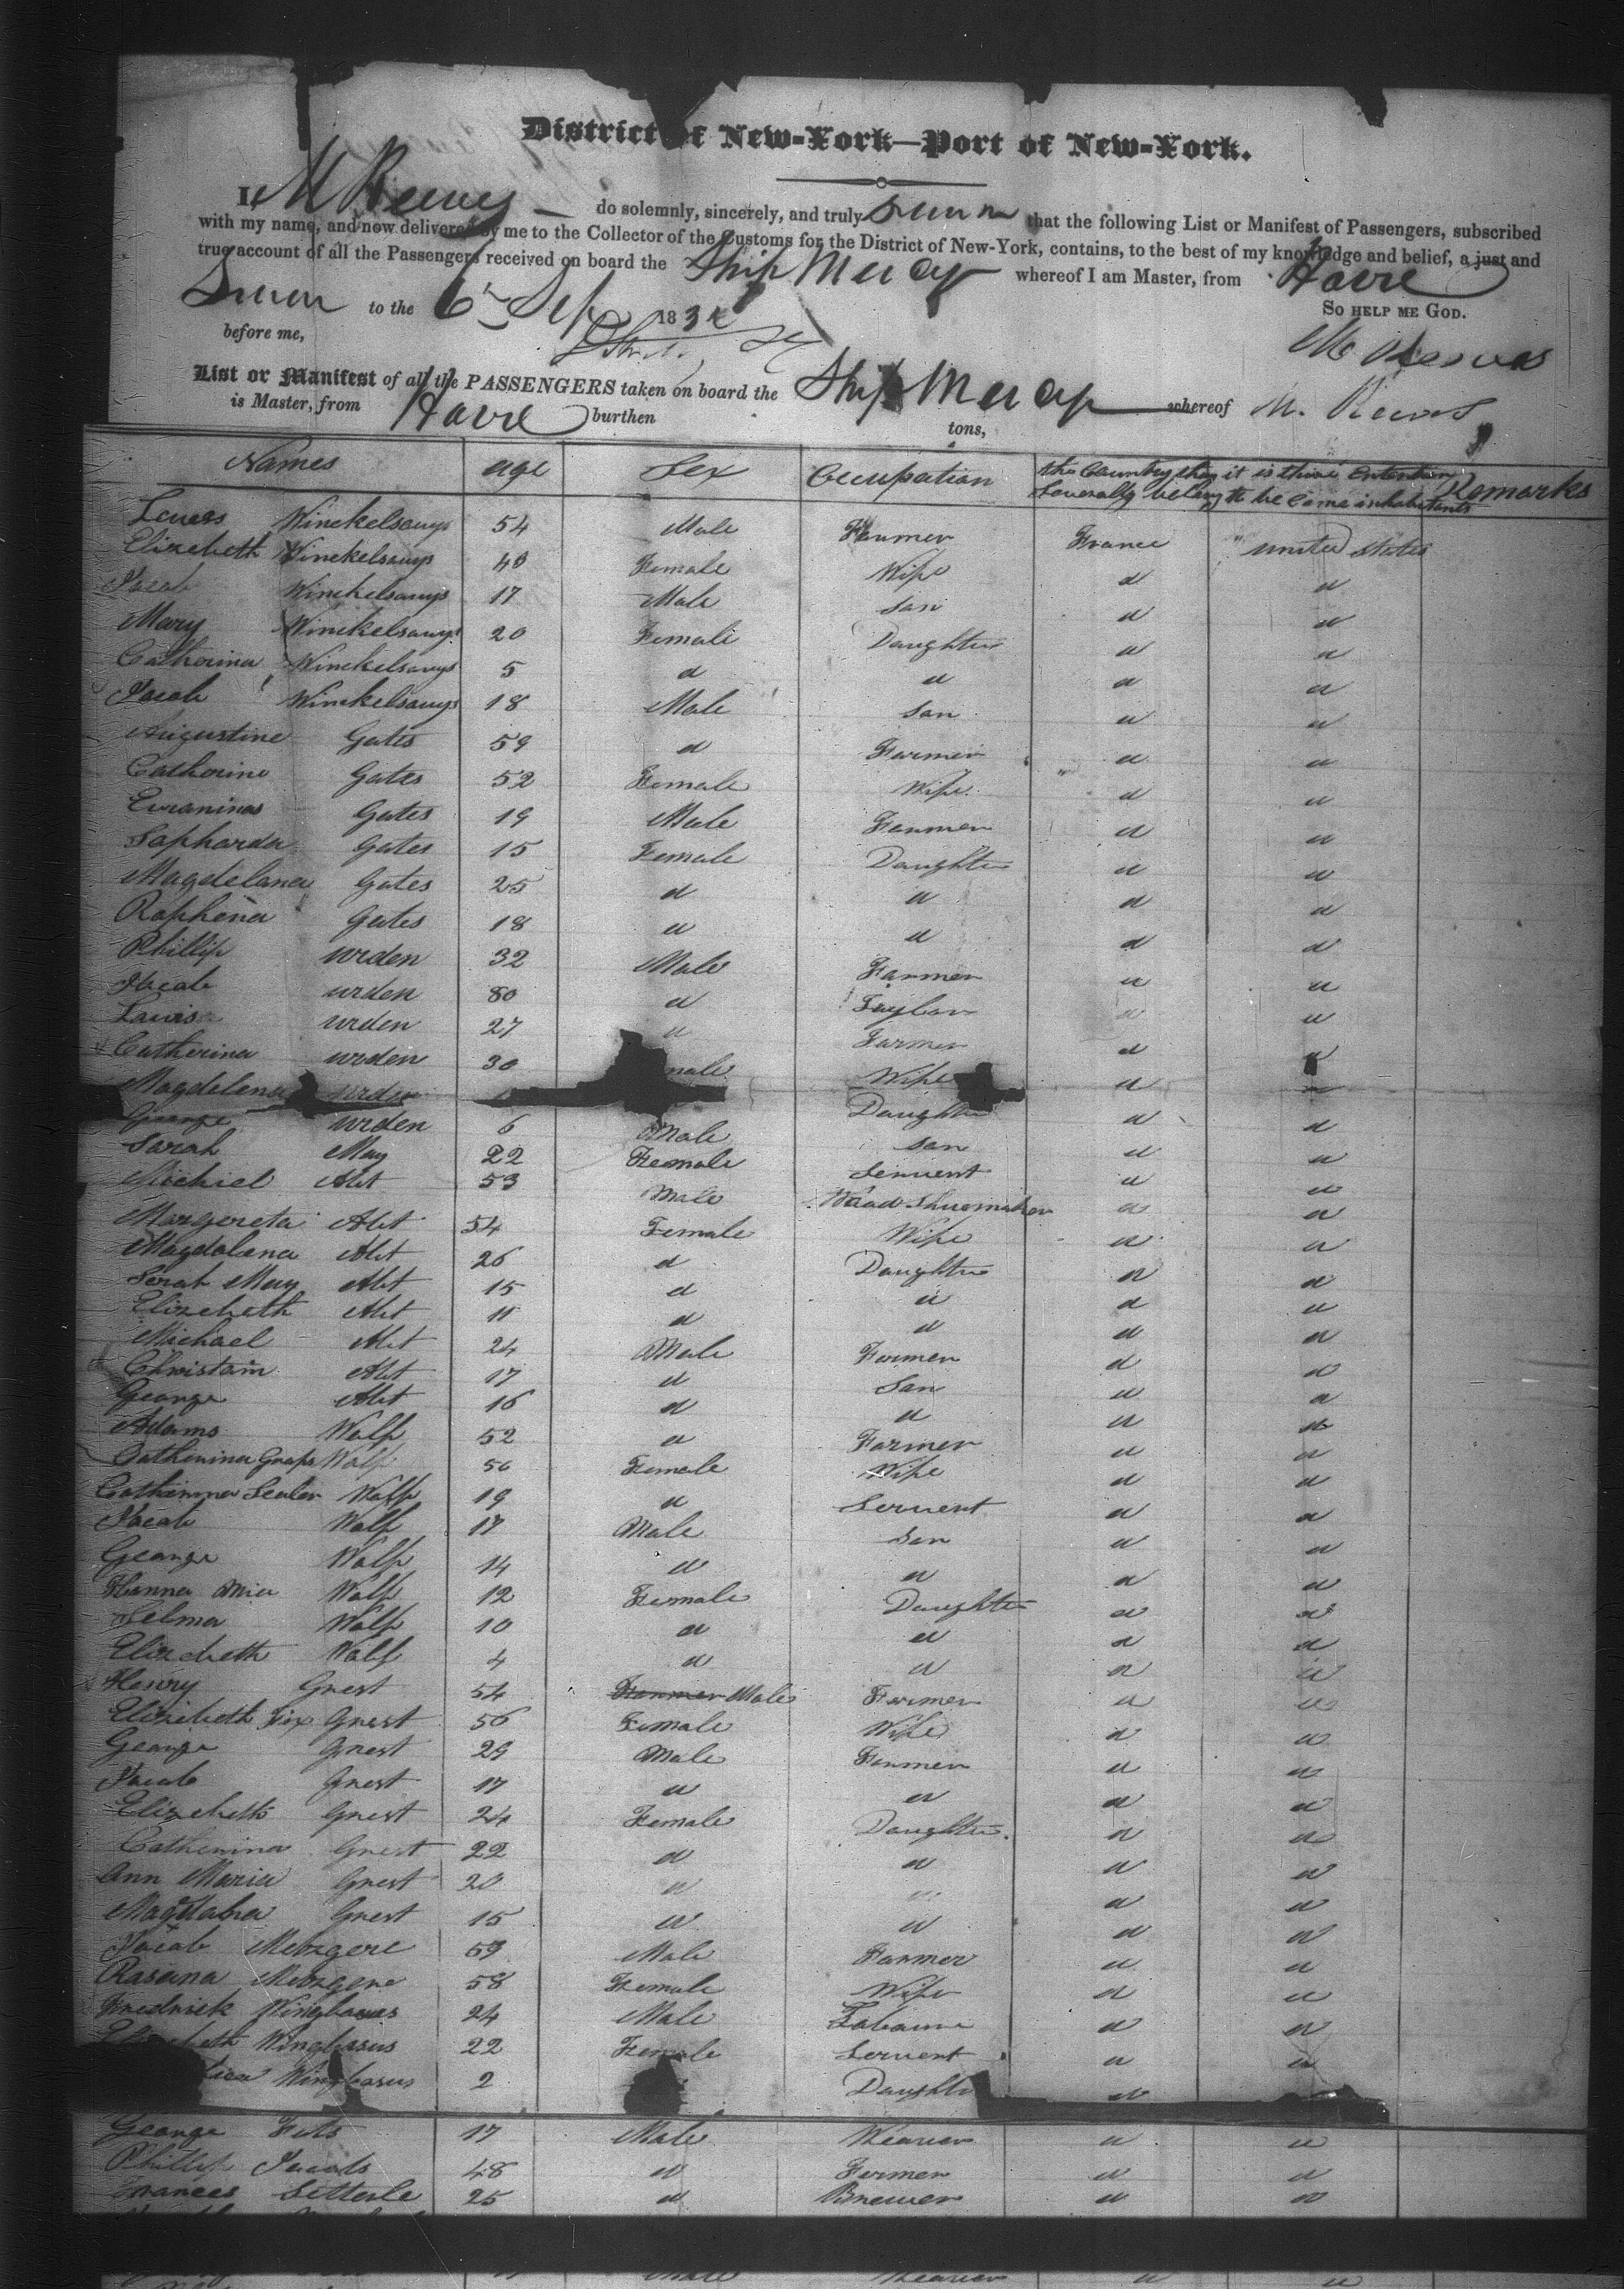 District of New-York—Port of New-York.
I, M Reeves do solemnly, sincerely, and truly swear that the following List or Manifest of Passengers, subscribed
with my name, and now delivered by me to the Collector of the Customs for the District of New-York, contains, to the best of my knowledge and belief, a just and
true account of all the Passengers received on board the Ship Mercy whereof I am Master, from Havre
Sworn to the 6th Sep 183 So HELP ME GOD.
before me, M Reeves
List or Manifest of all the PASSENGERS taken on board the Ship Mercy whereof M. Reeves
is Master, from Havre burthen tons,
Names age Sex Occupation the Country they severally belong it is their intention to become inhabitants Remarks
Winckelsauys 54 Male Farmer France United States
Elizebeth Winckelsauys Female Wife d d
Jacob Winckelsauys 17 Male San d d
Mary Winckelsauys 20 Female Daughter d d
Catherina Winckelsauys 5 d d d d
Jacob Winckelsauys 18 Male San d d
Augustine Gates 59 d Farmer d d
Catherine Gates 52 Female Wife d d
Gates 19 Male Farmer d d
Sapharda Gates 15 Female Daughter d d
Magdelana Gates 25 d d d d
Raphena Gates 18 d d d d
Phillip urden 32 Male Farmer d d
Jacob urden 80 d Taylor d d
Lewis urden 27 d Farmer d
Catherina urden 30 male Wife d
Magdelena urden Daughter d d
George urden 6 Male San d d
Sarah May 22 Female Servent d d
Michiel Abt 53 Male Waad Shuemaker d d
Margereta Abt 54 Female Wife d d
Magdalena Abt 26 d Daughter d d
Serah May Abt 15 d d d d
Elizebeth Abt 11 d d d d
Michael Abt 24 Male Farmer d d
Christain Abt 17 d San d d
George Abt 16 d d d d
Adams Walf 52 d Farmer d d
Catherina Graps Walf 50 Female Wife d d
Catherina Sealer Walf 19 d Servent d d
Jacob Walf 17 Male San d d
George Walf 14 d d d d
Hanna Mia Walf 12 Female Daughter d d
Selma Walf 10 d d d d
Elizebeth Walf 4 d d d d
Henry Grest 54 Farmer Male Farmer d d
Elizebeth Fix Grest 56 Female Wife d d
George Grest 29 Male Farmer d d
Jacob Grest 17 d d d d
Elizebeth Grest 24 Female Daughter d d
Catherina Grest 22 d d d d
Ann Maria Grest 20 d d d
Magdalna Grest 15 d d d d
Jacob Metzgere 59 Male Farmer d d
Rasana Metzgere 58 Female Wife d d
Fredrick Wingbasus 24 Male Labaurer d d
Wingbasus 22 Female Servent d d
Wingbasus 2 Daughter d
George Fels 17 Male Weaver d d
Phillip Jacobs 48 d Farmer d d
Frances Setterle 25 d Brewer d d